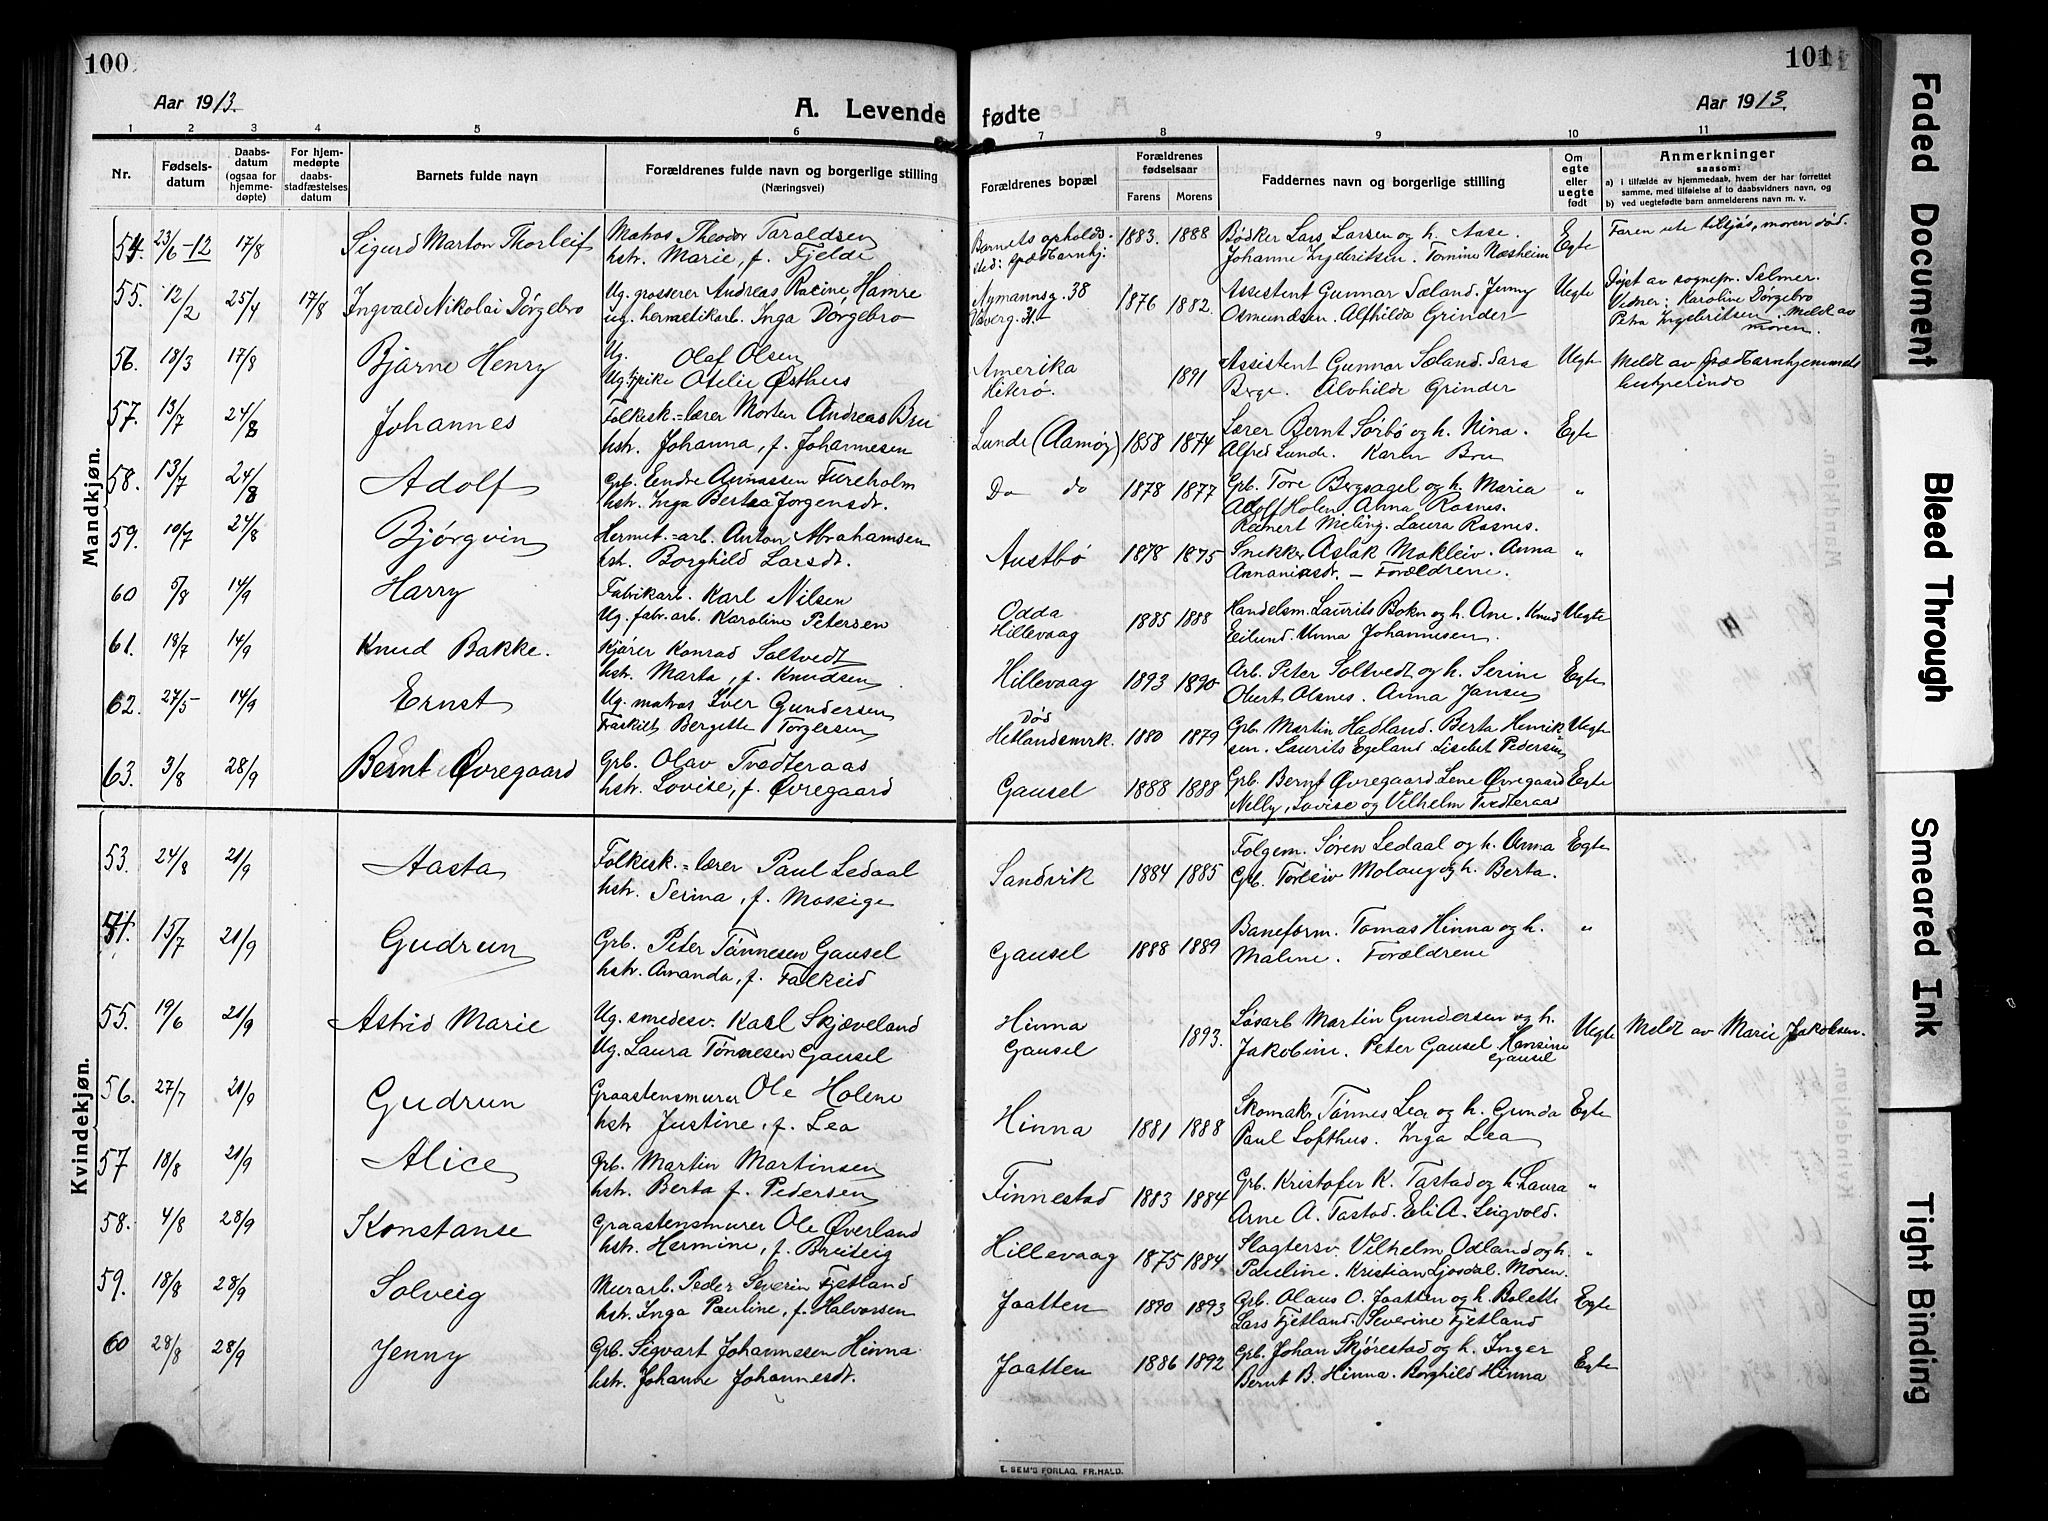 100
101
Aar 1913.
A. Levende fødte
Aar 1913.
1 2 3 4 5 6 7 8 9 10 11
Nr.
Fødselsdatum
Daabsdatum (ogsaa for hjemmedøpte)
For hjemmedøpte daabsstadfæstelses datum
Barnets fulde navn
Forældrenes fulde navn og borgerlige stilling
(Næringsvei)
Forældrenes bopæl
Forældrenes fødselsaar
Farens Morens
Faddernes navn og borgerlige stilling
Om egte eller uegte født
Anmerkninger
saasom:
a) i tilfælde av hjemmedaab, hvem der har forrettet samme, med tilføielse af to daabsvidners navn, og
b) ved uegtefødte barn anmelderens navn m. v.
Mandkjøn.
54. 23/6-12 17/8 Sigurd Marton Thorleif Matros Theodor Taraldsen
hstr. Marie, f. Fjelde
Barnets opholdssted: Spædbarnhj. 1883. 1888 Bødker Lars Larsen og h. Aase.
Johanne Ingebritsen. Tomine Næsheim Egte Faren ute tilsjøs, moren død.
55. 12/2 25/4 17/8 Ingvald Nikolai Dørgebro Ug. grosserer Andreas Racine Hamre
ug. hermetikarb. Inga Dørgebro
Nymannsg. 38 1876 1882. Assistent Gunnar Sæland. Jenny
Osmundsen. Alfhilda Grinder Uegte Døpt av sognepr. Selmer.
Vidner: Karoline Dørgebro
Petra Ingebritsen. Meldt av
moren.
56. 18/3 17/8 Bjarne Henry Ug. Olaf Olsen
Ug. pike Otelie Østhus
Amerika
Hitterø. 1891 Assistent Gunnar Sæland. Sara
Berge. Alvhilde Grinder Uegte Meldt av Spædbarnhjemmets
bestyrerinde
57. 13/7 24/8 Johannes Folkesk.=lærer Morten Andreas Bru
hstr. Johanna, f. Johannesen
Lunde (Aamøy) 1858 1874 Lærer Bernt Sørbø og h. Nina.
Alfred Lunde. Karen Bru Egte
58. 13/7 24/8 Adolf Grb. Endre Annassen Fureholm
hstr. Inga Bertea Jørgensdt.
Do do 1878 1877 Grb. Tore Bergsagel og h. Maria
Adolf Holen Anna Rosnes.
Reinert Meling. Laura Rosnes. "
59. 10/7 24/8 Bjørgvin Hermet.=arb. Anton Abrahamsen
hst. Borghild Larsdt.
Austbø 1878 1875 Snikker Aslak Makleiv. Anna
Annaniasdt. – Forældrene. "
60 5/8 14/9 Harry Fabrikarb. Karl Nilsen
Ug. fabr. arb. Karoline Petersen
Odda
Hillevaag 1885 1888 Handelsm. Laurits Bokn og h. Ane. Knud
Eilund. Unna Johannesen. Uegte
61. 19/7 14/9 Knud Bakke. Kjører Konrad Soltvedt
hstr. Marta, f. Knudsen
Hillevaag 1893 1890 Arb. Peter Soltvedt og h. Serine
Obert Olsnes. Anna Jansen Egte
62. 27/5 14/9 Ernst Ug. matros Iver Gundersen
Fraskilt Bergitte Torgersen
Død
Hetlandsmrk. 1880 1879 Grb. Martin Hadland. Berta Henriksen. Laurits Egeland. Lisebet Pedersen Uegte
63. 3/8 28/9 Bernt Øvregaard Grb. Olav Tvedteraas
hstr. Lovise, f. Øvregaard
Gausel 1888 1888 Grb. Bernt Øvregaard Lene Øvregaard
Nelly, Lovise og Vilhelm Tvedteraas Egte
Kvindekjøn.
53. 24/8 21/9 Aasta Folkesk.=lærer Paul Ledaal
hstr. Serina, f. Mossige
Sandvik 1884 1885 Folgem. Søren Ledaal og h. Anna
Grb. Torleiv Molaug og h. Berta. Egte
54. 15/7 21/9 Gudrun Grb. Peter Tønnesen Gausel
hstr. Amanda, f. Falkeid
Gausel 1888 1889 Baneform. Tomas Hinna og h.
Maline. Forældrene "
55. 19/6 21/9 Astrid Marie Ug. smedesv. Karl Skjæveland
Ug. Laura Tønnesen Gausel
Hinna
Gausel 1893. Løsarb Martin Gundersen og h.
Jakobine. Peter Gausel Hansine
Gausel Uegte Meldt av Marie Jakobsen.
56. 27/7 21/9 Gudrun Graastensmurer Ole Holene
hstr Justine, f. Lea
Hinna 1881 1888 Skomakr Tønnes Lea og h. Gunda
Paul Lofthus. Inga Lea Egte
57 18/8 21/9 Alice Grb. Martin Martinsen
hstr. Berta f. Pedersen
Finnestad 1883 1884 Grb. Kristofer K. Tastad og h. Laura
Arne A. Tastad. Eli A. Leigvold. "
58. 4/8 28/9 Konstanse Graastensmurer Ole Øverland
hstr. Hermine, f. Breiteig
Hillevaag 1875 1884 Slagtersv. Vilhelm Odland og h.
Pauline. Kristian Ljosdal. Moren. "
59. 18/8 28/9 Solveig Murarb. Peder Severin Fjetland
hstr. Inga Pauline, f. Halvorsen
Jaatten 1890 1893 Grb. Olaus O. Jaatten og h. Bolette
Lars Fjetland. Severine Fjetland Egte
60 28/8 28/9 Jenny Grb. Sigvart Johannesen Hinna
hstr. Johanne Johannesdt.
Jaatten 1886 1892 Grb. Johan Skjørestad og h. Inger
Bernt B. Hinna. Borghild Hinna Egte
E. SEM'S FORLAG, FR.HALD.
Faded Document
Bleed Through
Smeared Ink
Tight Binding